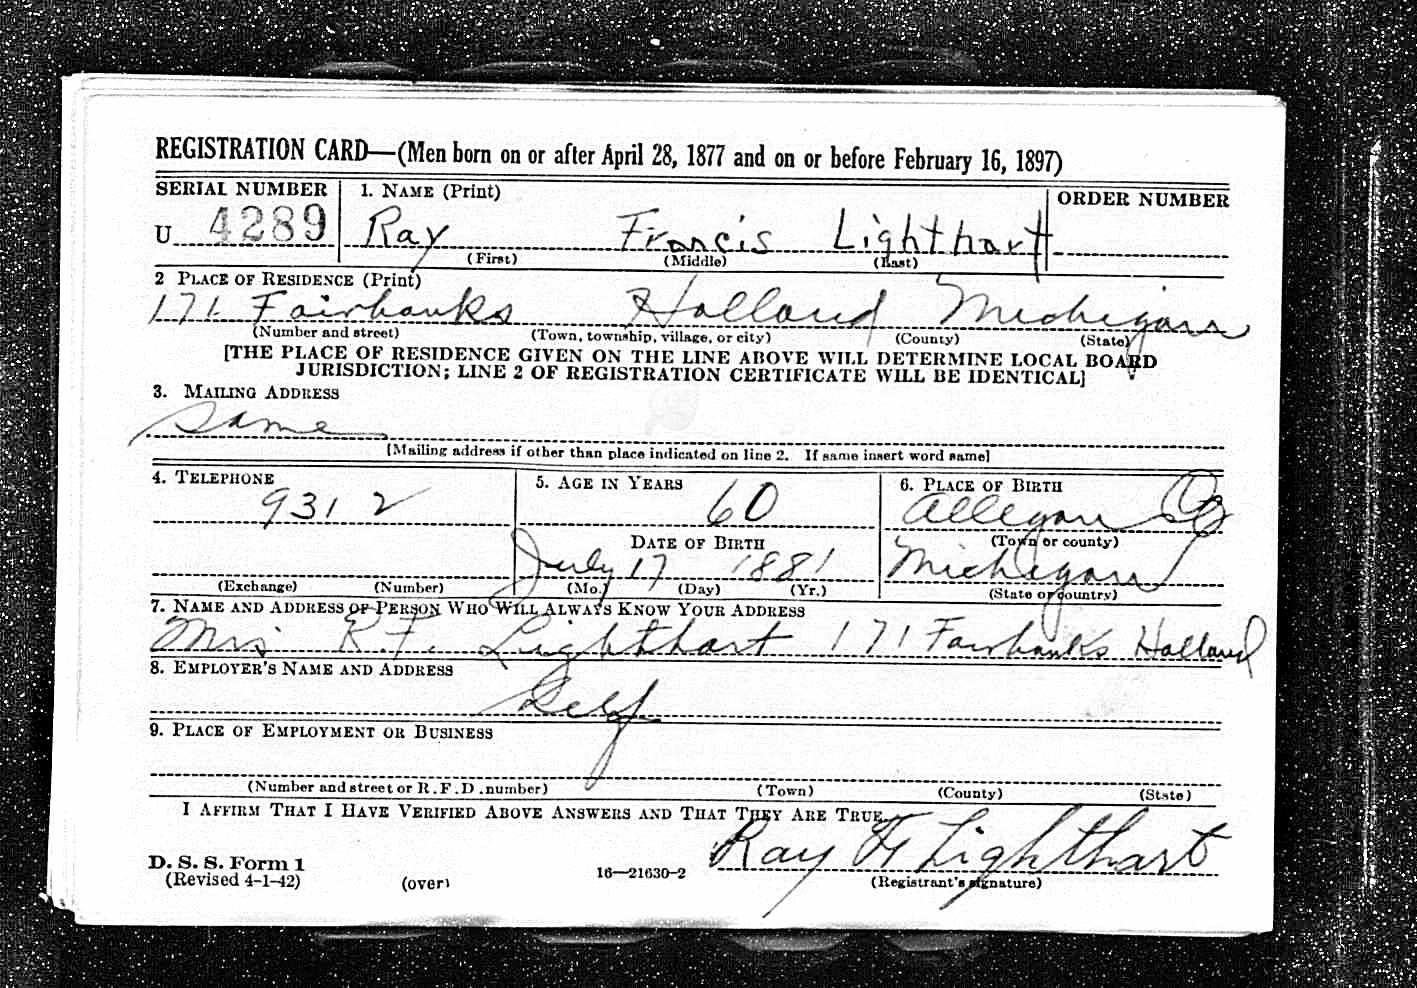 REGISTRATION CARD—(Men born on or after April 28, 1877 and on or before February 16, 1897)
SERIAL NUMBER
1. NAME (Print)
ORDER NUMBER
U 4289
Ray Francis Lighthart
(First) (Middle) (Last)
2 PLACE OF RESIDENCE (Print)
171 Fairbanks Holland Michigan
(Number and street) (Town, township, village, or city) (County) (State)
[THE PLACE OF RESIDENCE GIVEN ON THE LINE ABOVE WILL DETERMINE LOCAL BOARD
JURISDICTION; LINE 2 OF REGISTRATION CERTIFICATE WILL BE IDENTICAL]
3. MAILING ADDRESS
same
[Mailing address if other than place indicated on line 2. If same insert word same]
4. TELEPHONE
9312
(Exchange) (Number)
5. AGE IN YEARS
60
DATE OF BIRTH
July 17 1881
(Mo.) (Day) (Yr.)
6. PLACE OF BIRTH
Allegan Co
(Town or county)
Michigan
(State or country)
7. NAME AND ADDRESS OF PERSON WHO WILL ALWAYS KNOW YOUR ADDRESS
Mrs R.F. Lighthart 171 Fairbanks Holland
8. EMPLOYER'S NAME AND ADDRESS
Self
9. PLACE OF EMPLOYMENT OR BUSINESS
(Number and street or R.F.D. number) (Town) (County) (State)
I AFFIRM THAT I HAVE VERIFIED ABOVE ANSWERS AND THAT THEY ARE TRUE.
Ray F Lighthart
D. S. S. Form 1
(Revised 4-1-42) (over) 16—21630-2 (Registrant's signature)